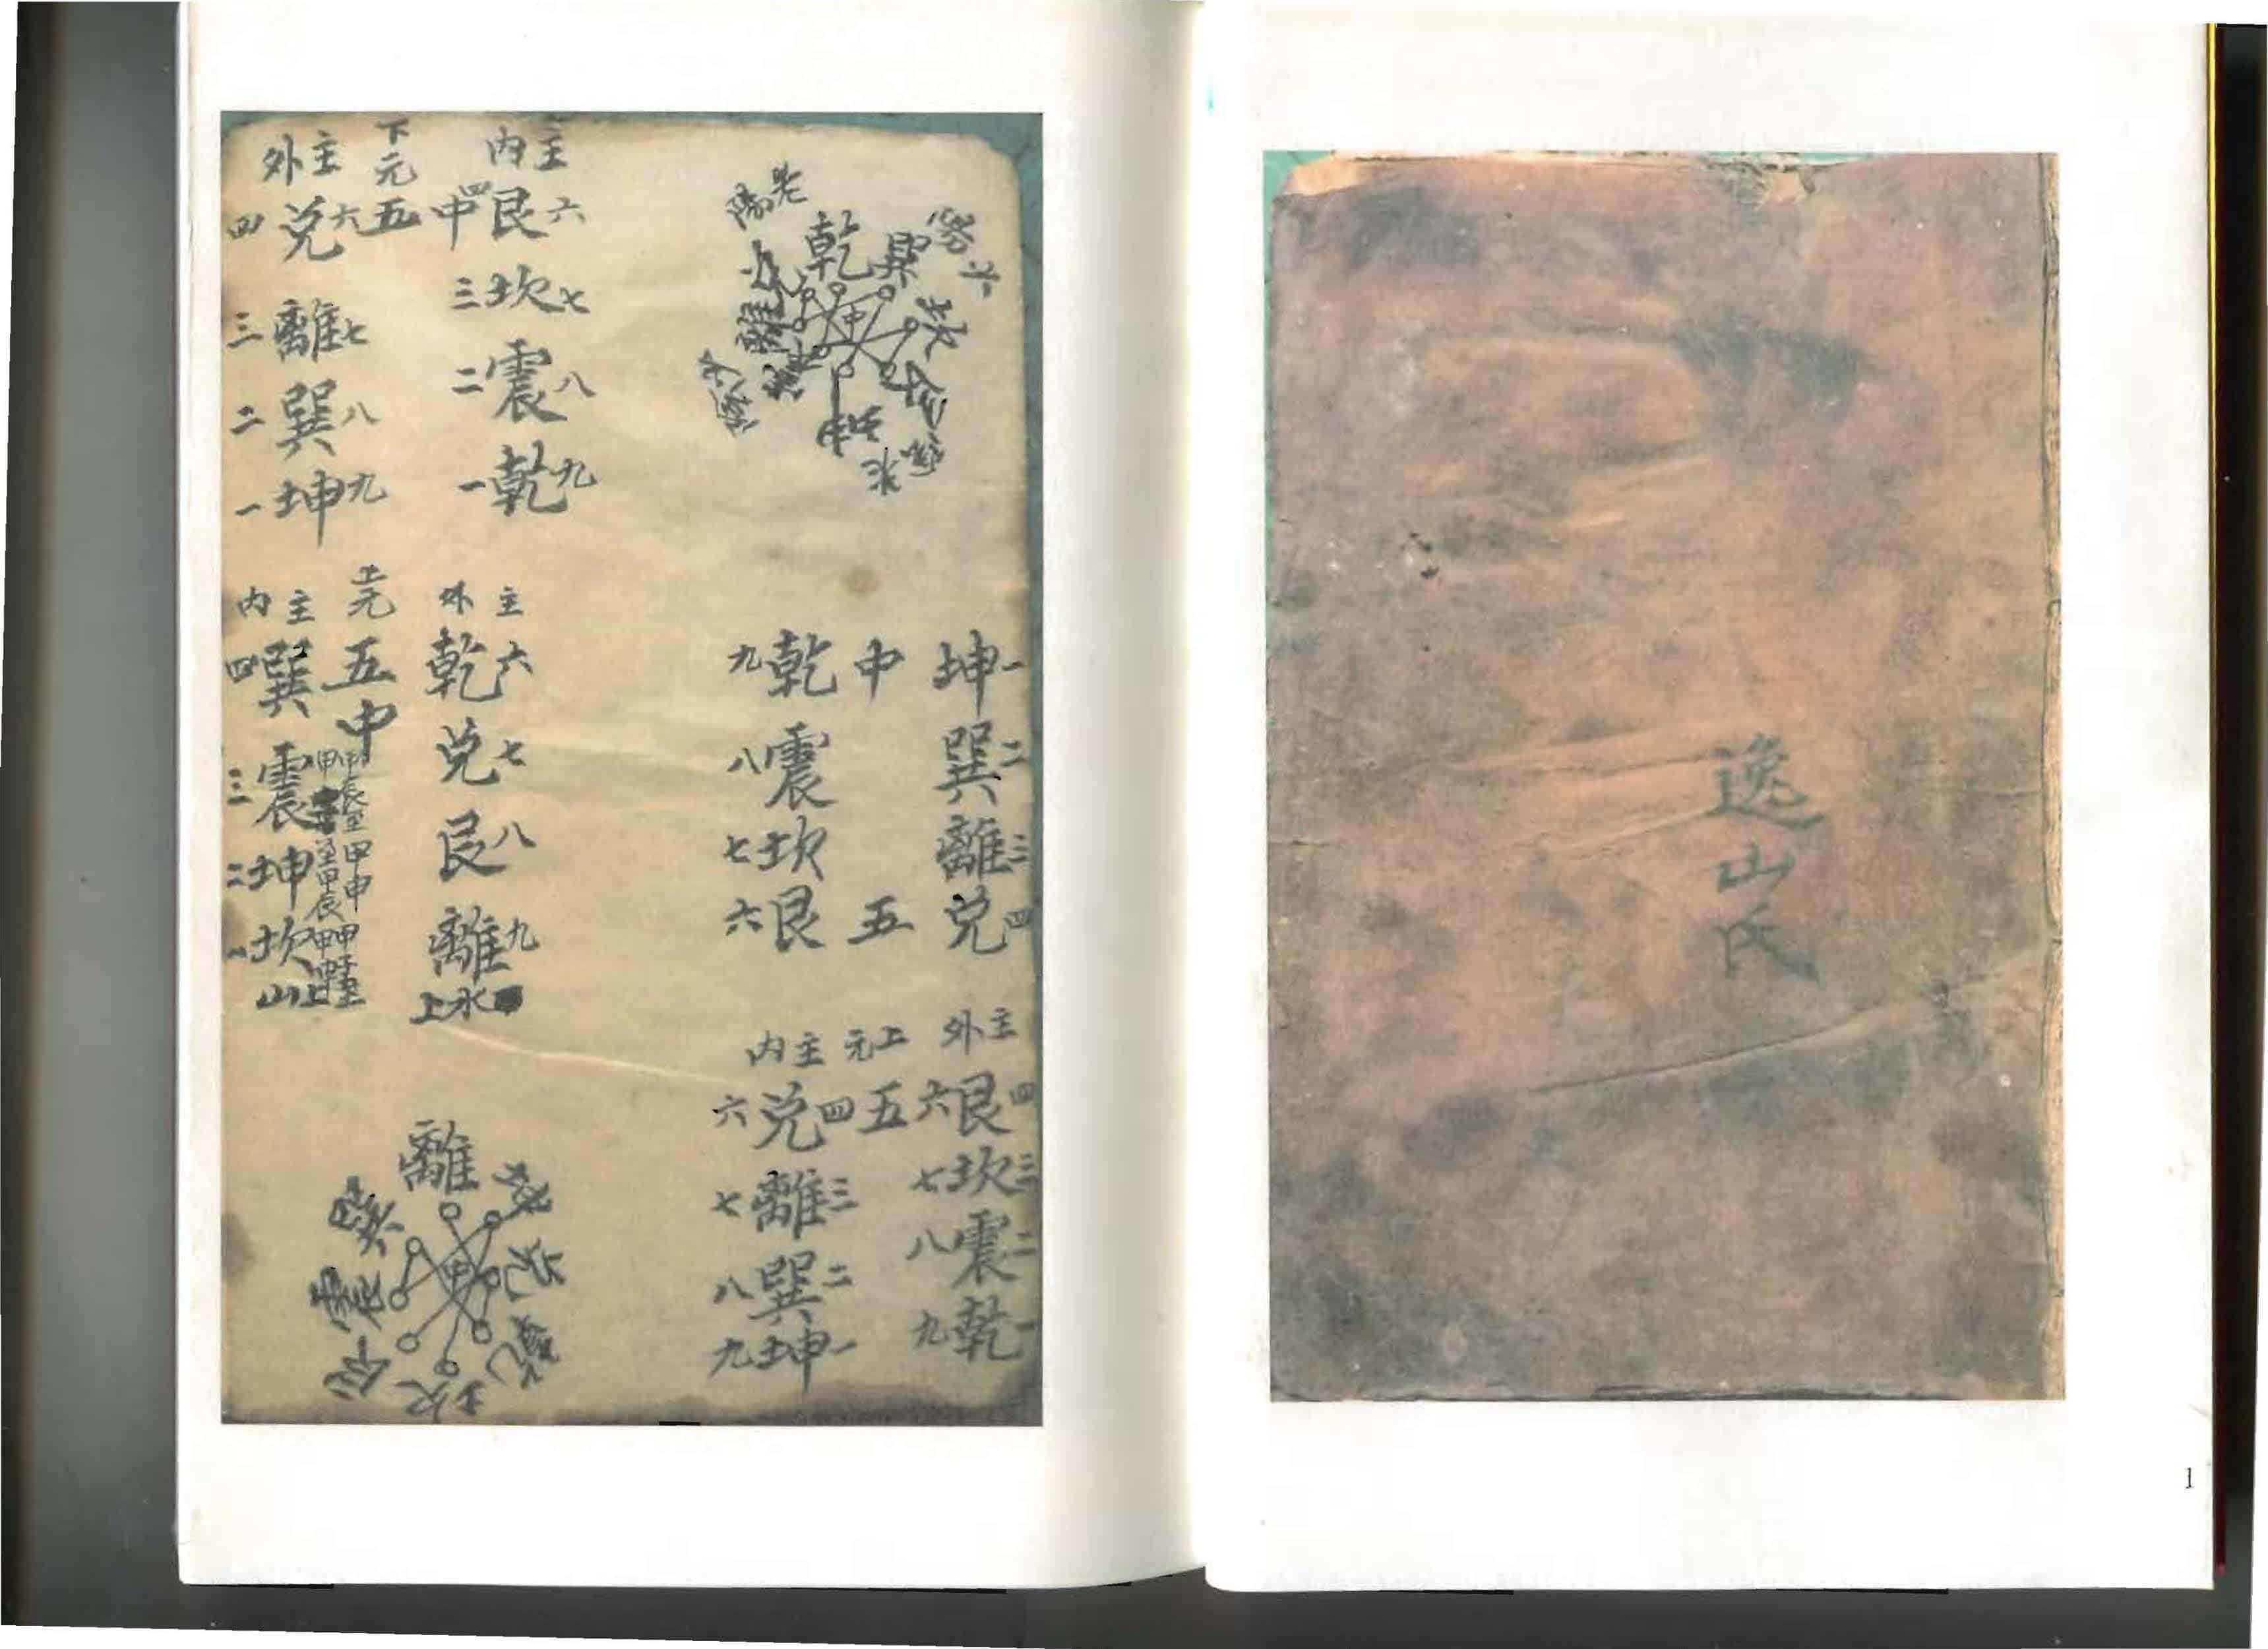 逸山氏
1
老陽
乾
巽
坎
艮
坤
震
離
兌
中
坤一
巽二
離三
兌四
中
五
九乾
八震
七坎
六艮
主外
六艮四
七坎三
八震二
九乾一
上元
五
主內
六兌四
七離三
八巽二
九坤一
主內
艮六
三坎七
二震八
一乾九
四中
下元
五
主外
四兌六
三離七
二巽八
一坤九
主外
乾六
兌七
艮八
離九
上水
上元
五
中
甲辰至甲申
主內
四巽
三震
二坤
一坎
山上
離
坤
兌
乾
坎
艮
震
巽
中